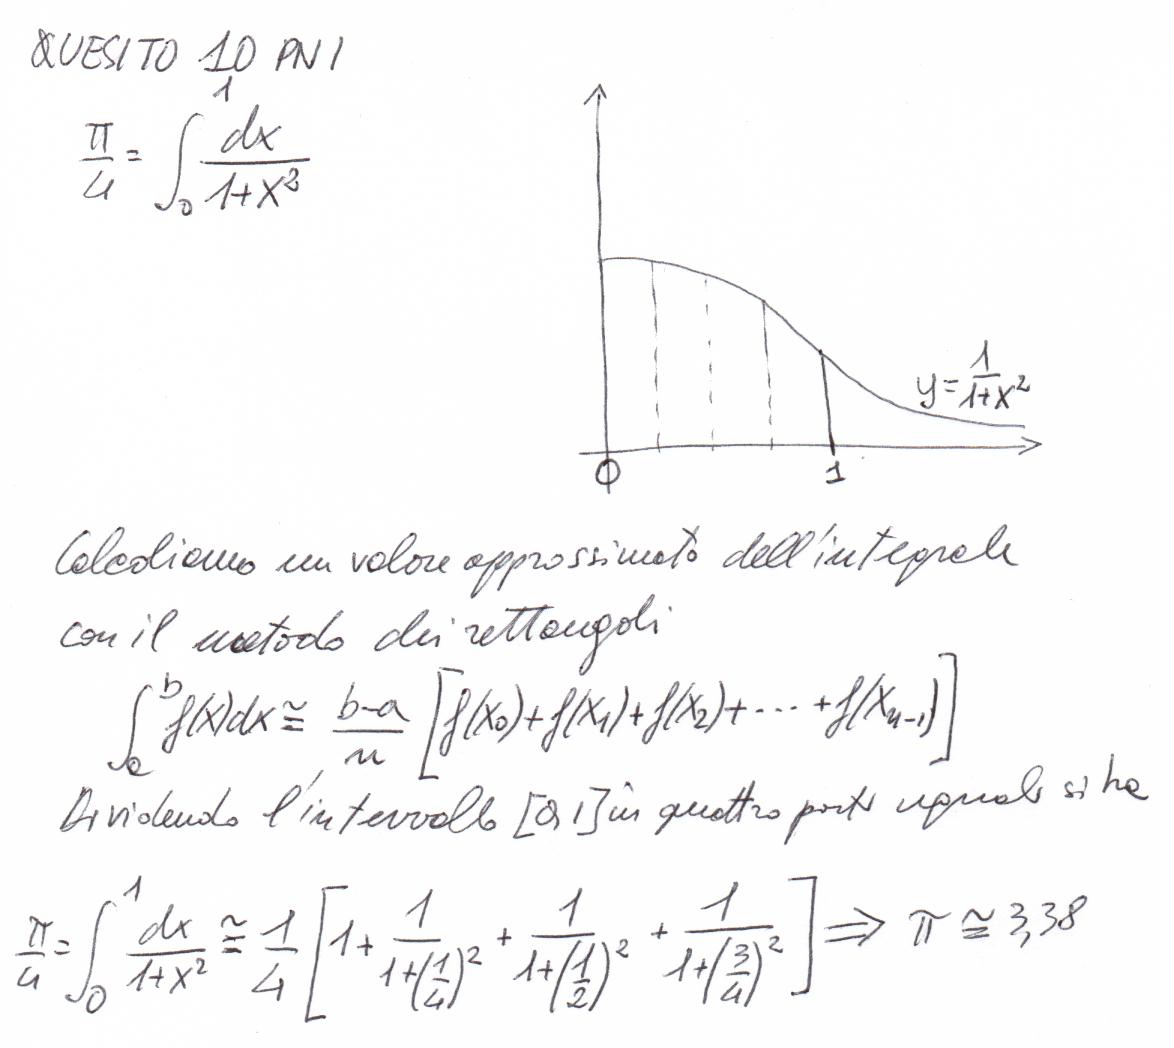 QUESITO 10 PNI
π/4 = ∫₀¹ dx/(1+x²)
y = 1/(1+x²)
0 1
Calcoliamo un valore approssimato dell'integrale
con il metodo dei rettangoli
∫ₐᵇ f(x)dx ≅ (b-a)/n [f(x₀)+f(x₁)+f(x₂)+····+f(xₙ₋₁)]
Dividendo l'intervallo [0,1] in quattro parti uguali si ha
π/4 = ∫₀¹ dx/(1+x²) ≅ 1/4 [1 + 1/(1+(1/4)²) + 1/(1+(1/2)²) + 1/(1+(3/4)²)] ⇒ π ≅ 3,38